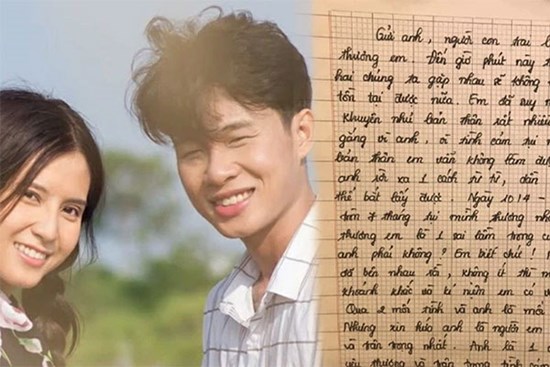 Gửi anh, người con trai
thương em. Đến giờ phút này
hai chúng ta gặp nhau sẽ không
tồn tại được nữa. Em đã suy
khuyên nhủ bản thân rất nhiều
gắng vì anh, vì tình cảm
bản thân em vẫn không làm
anh rời xa 1 cách từ từ, dần
thể bắt lấy được. Ngày 10/4 -
hơn 7 tháng tụi mình thương
thương em là 1 sai lầm trong
anh phải không? Em biết chứ!
đó bên nhau rồi, không ít thì
khoảnh khắc và kỉ niệm em có
Qua 2 mối tình và anh là mối
Nhưng xin hứa anh là người em
và trân trọng nhất. Anh là 1
yêu thương và trân trọng tình